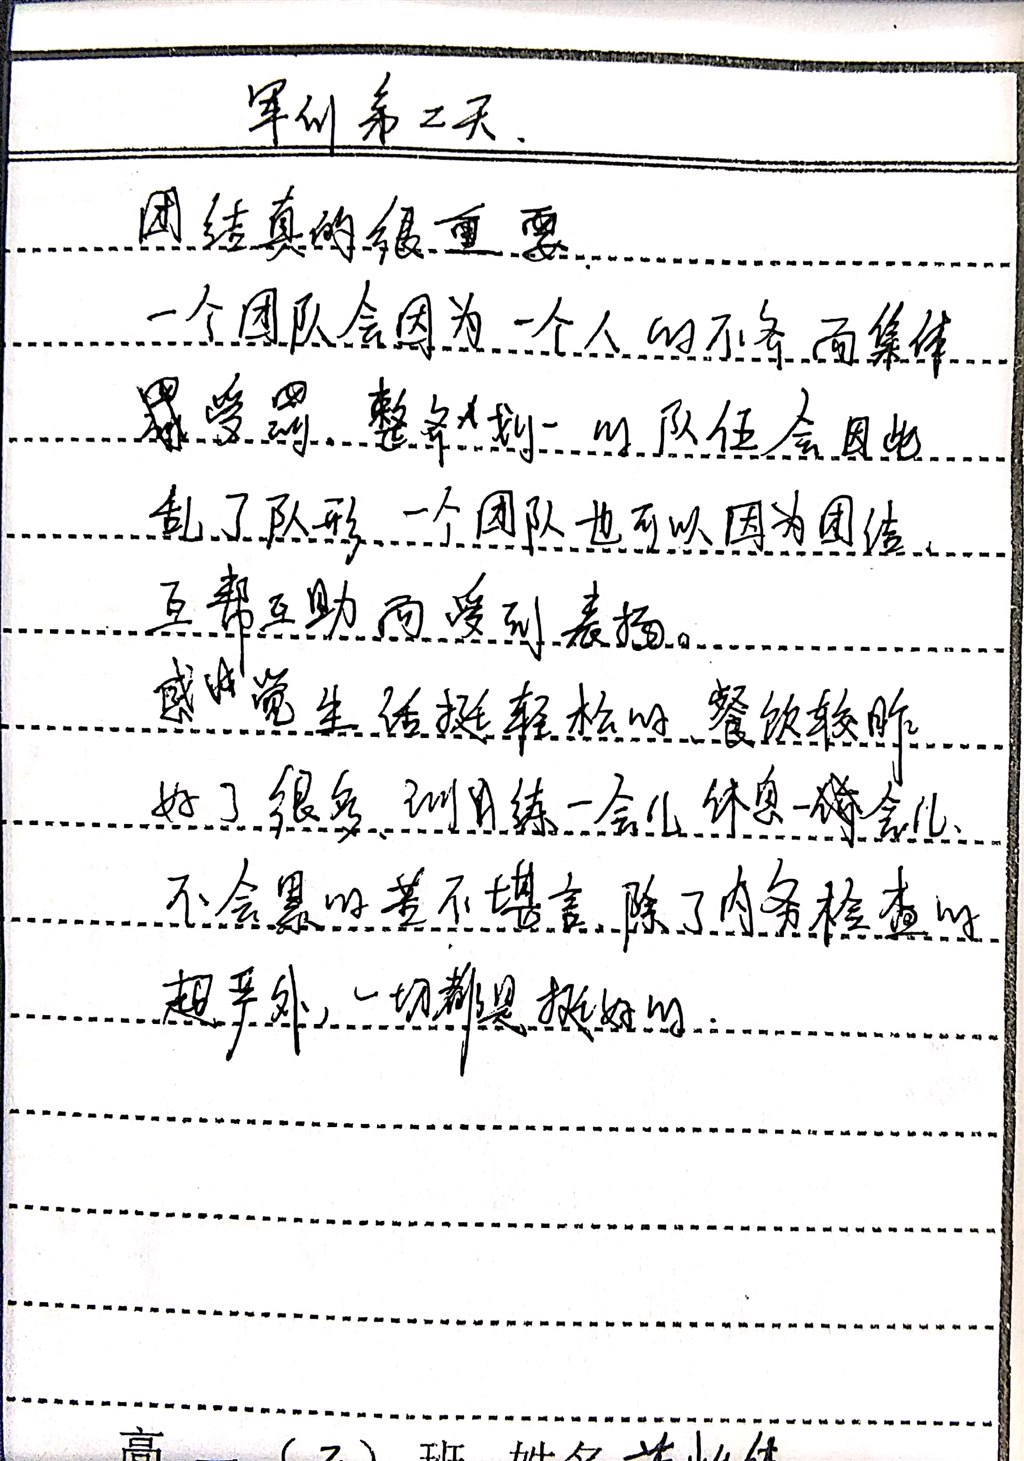 军训第二天.
团结真的很重要.
一个团队会因为一个人的不齐而集体
受罚.整齐划一的队伍会因此
乱了队形.一个团队也可以因为团结、
互帮互助而受到表扬。
感觉生活挺轻松的.餐饮较昨
好了很多、训练一会儿休息一会儿、
不会累的苦不堪言.除了内务检查的
超严外,一切都是挺好的.
高一(3)班 姓名